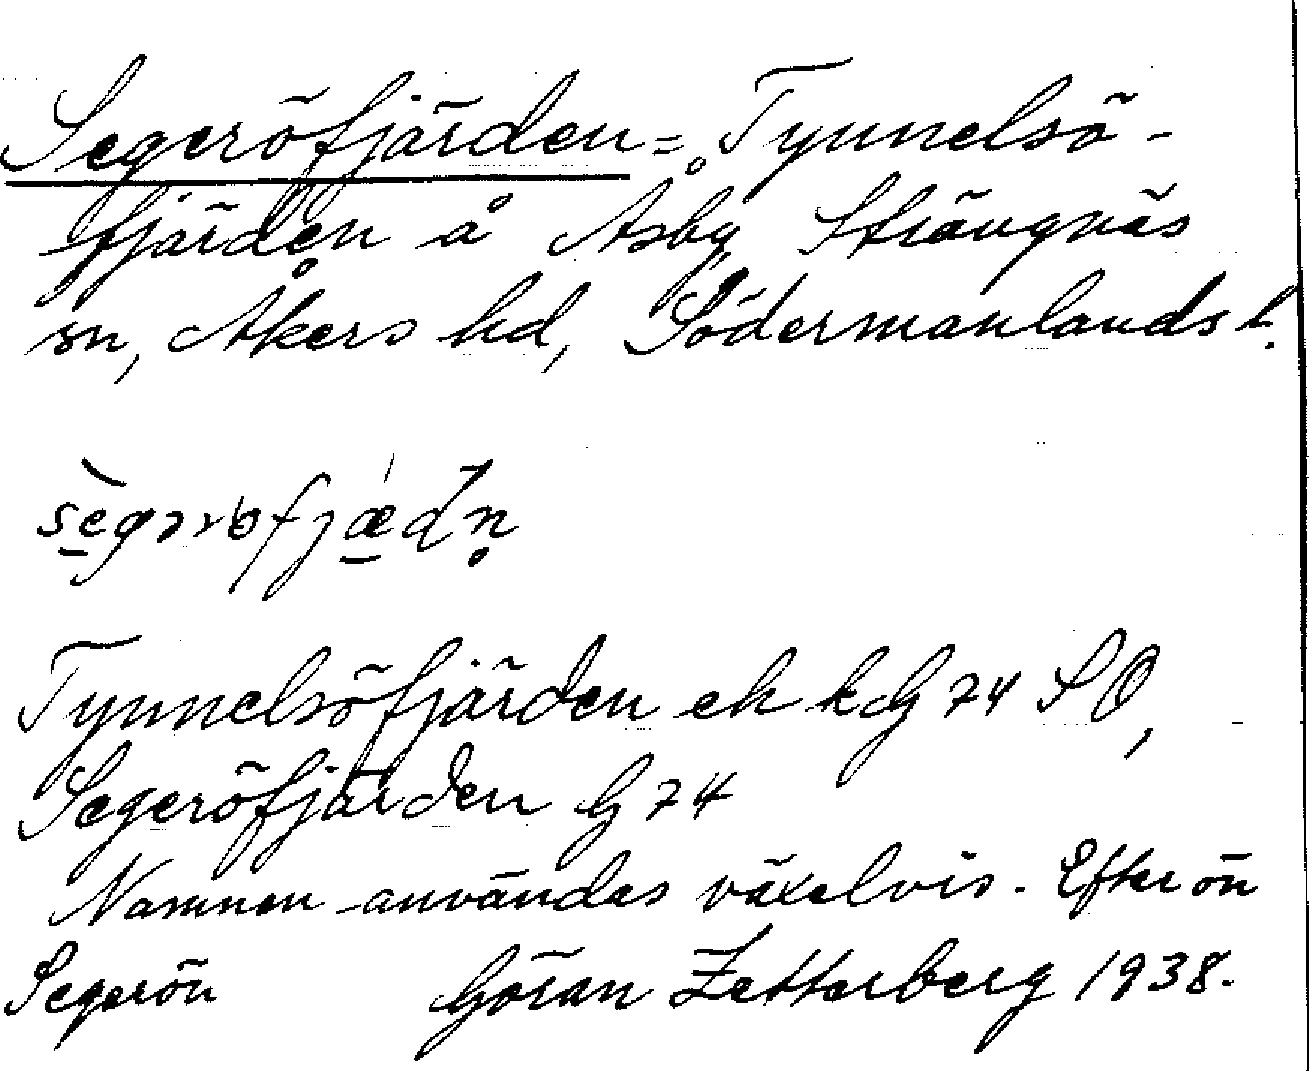 Segeröfjärden = Tynnelsö-
fjärden å Åsby Strängnäs
sn, Åkers hd, Södermanlands l.
Tynnelsöfjärden ek k G 74 SO,
Segeröfjärden G 74
Namnen användes växelvis. Efter ön
Segerön Göran Zetterberg 1938.